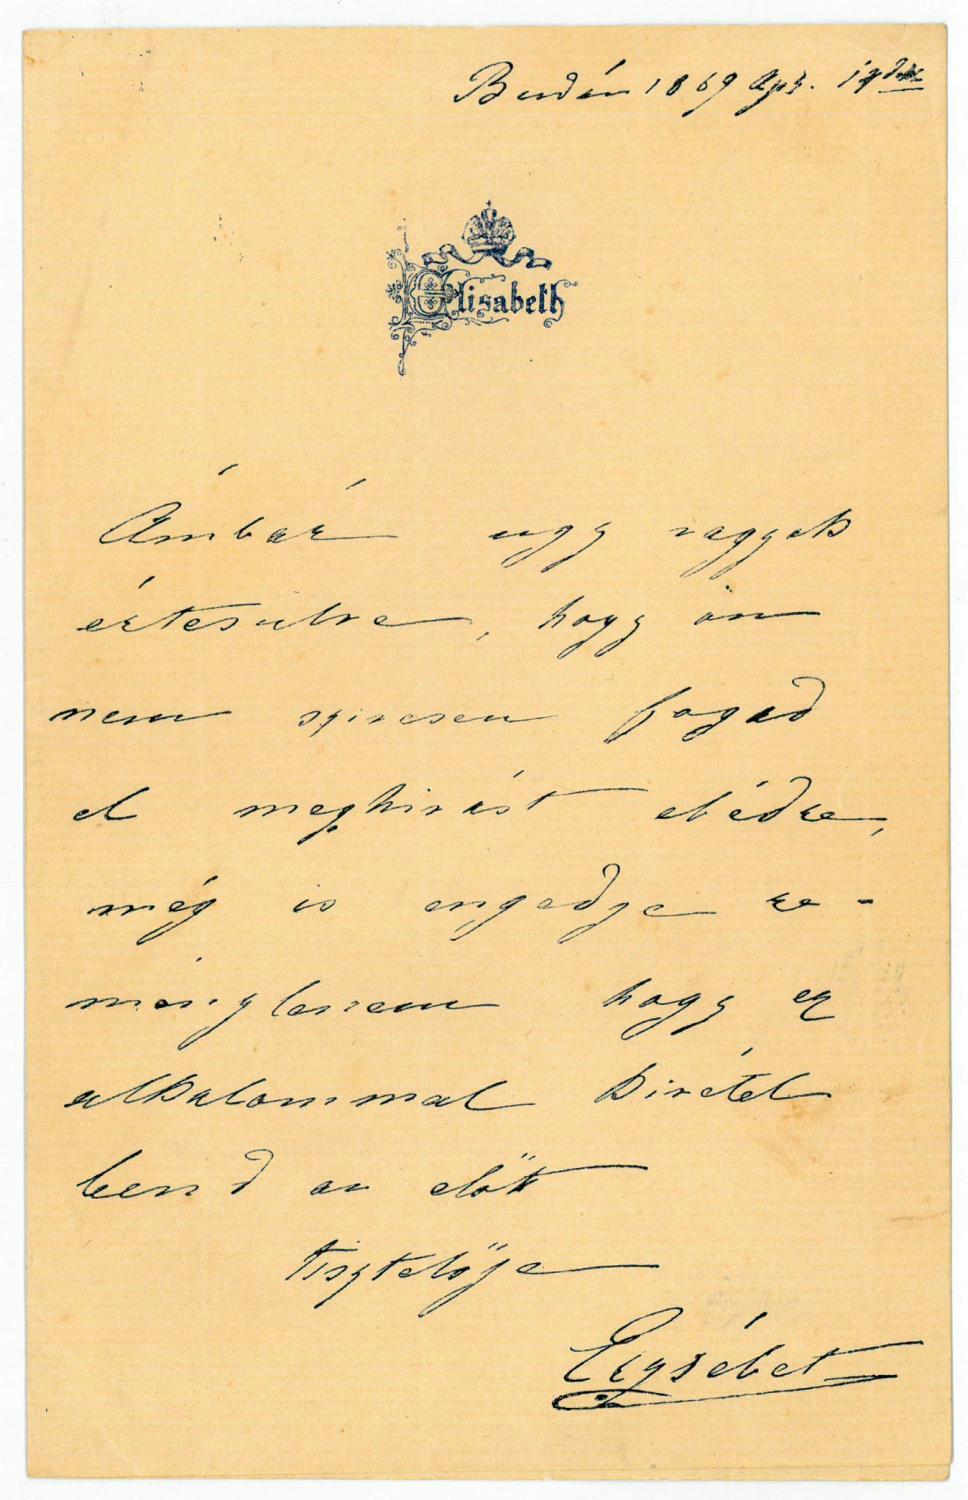 Budán 1869 Apr. 19dik
Elisabeth
Ámbár ugy vagyok
értesülve, hogy ön
nem szivesen fogad
el meghivást ebédre,
még is engedje re-
ménylenem hogy ez
alkalommal kivétel
lend ön előtt
tisztelője
Erzsébet